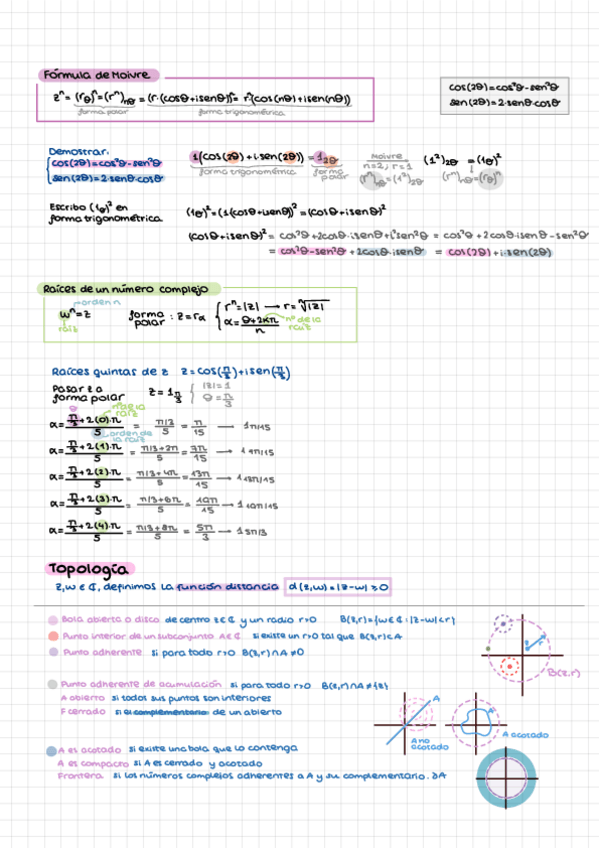 Fórmula de Moivre
zⁿ = (r_θ)ⁿ = (rⁿ)_nθ = (r·(cosθ+isenθ))ⁿ = rⁿ(cos(nθ)+isen(nθ))
forma polar
forma trigonométrica
cos(2θ)=cos²θ-sen²θ
sen(2θ)=2·senθ·cosθ
Demostrar:
cos(2θ)=cos²θ-sen²θ
sen(2θ)=2·senθ·cosθ
1(cos(2θ)+i·sen(2θ)) = 1_2θ
forma trigonométrica
forma polar
Moivre
n=2, r=1
(rⁿ)_nθ=(1²)_2θ
(1²)_2θ = (1θ)²
(rⁿ)_nθ=(rθ)ⁿ
Escribo (1θ)² en
forma trigonométrica
(1θ)² = (1(cosθ+isenθ))² = (cosθ+isenθ)²
(cosθ+isenθ)² = cos²θ+2cosθ·isenθ+i²sen²θ = cos²θ+2cosθ·isenθ-sen²θ
= cos²θ-sen²θ+2cosθ·isenθ = cos(2θ)+i·sen(2θ)
Raíces de un número complejo
orden n
wⁿ=z
raíz
forma polar : z=rα
rⁿ=|z| → r=ⁿ√|z|
α=θ+2kπ/n
nº de la raíz
Raíces quintas de z z=cos(π/3)+isen(π/3)
Pasar z a
forma polar
z=1_π/3
|z|=1
θ=π/3
nº de la raíz
α=(π/3+2(0)·π)/5 = (π/3)/5 = π/15 → 1π/15
orden de la raíz
α=(π/3+2(1)·π)/5 = (π/3+2π)/5 = 7π/15 → 1 7π/15
α=(π/3+2(2)·π)/5 = (π/3+4π)/5 = 13π/15 → 1 13π/15
α=(π/3+2(3)·π)/5 = (π/3+6π)/5 = 19π/15 → 1 19π/15
α=(π/3+2(4)·π)/5 = (π/3+8π)/5 = 5π/3 → 1 5π/3
Topología
z,w ∈ ℂ, definimos la función distancia d(z,w)=|z-w|≥0
Bola abierta o disco de centro z∈ℂ y un radio r>0 B(z,r)={w∈ℂ:|z-w|<r}
Punto interior de un subconjunto A∈ℂ si existe un r>0 tal que B(z,r)⊂A
Punto adherente si para todo r>0 B(z,r)∩A≠∅
B(z,r)
Punto adherente de acumulación si para todo r>0 B(z,r)∩A≠{z}
A abierto si todos sus puntos son interiores
F cerrado si el complementario de un abierto
A
A no acotado
A acotado
A es acotado si existe una bola que lo contenga
A es compacto si A es cerrado y acotado
Frontera si los números complejos adherentes a A y su complementario. ∂A